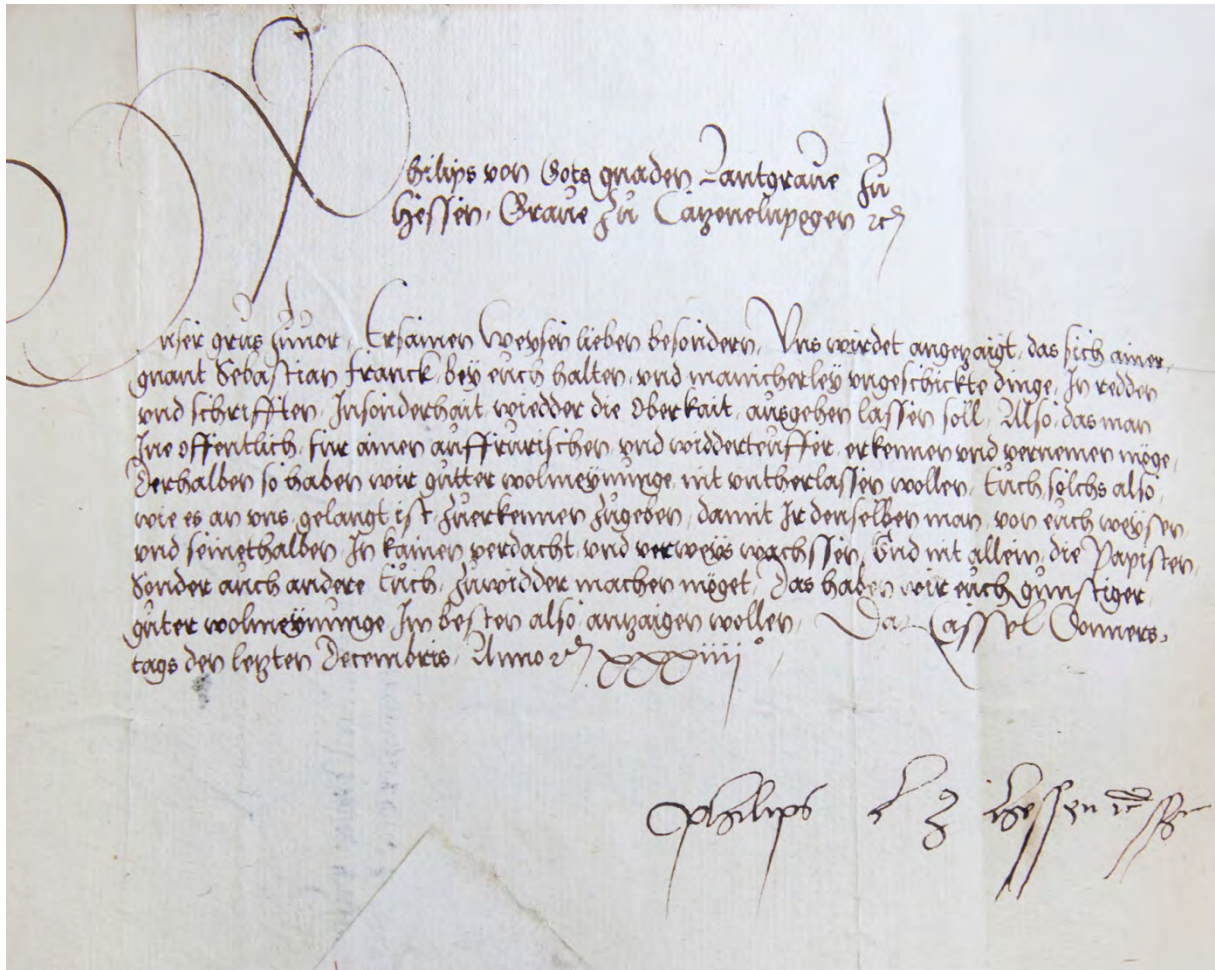 Philips von Gots gnaden Lantgraue zu
Hessen, Graue zu Catzenelnpogen rc
Unser grus zuuor, Ersamen Weysen lieben besondern, Uns wirdet angezaigt, das sich ainer,
gnant Sebastian Franck, bey euch halten, vnd manicherley vngeschickte dinge, In redden
vnd schrifften, Insonderhait, wiedder die Oberkait, ausgehen lassen soll, Also, das man
Ine offentlich, fur ainen auffrurischen, vnd widderteuffer, erkennen vnd vernemen möge,
Derhalben so haben wir gutter wolmeynunge, nit vntherlassen wollen, Euch solchs also,
wie es an vns, gelangt ist, zuerkennen zugeben, damit Ir denselben man, von euch weysen,
vnd seinethalben, In kainen verdacht, vnd verweys wachssen, Und nit allein, die Papisten,
Sonder auch andere Euch, zuwidder machen möget, Das haben wir euch gunstiger,
guter wolmeynunge, Im besten also, anzaigen wollen, Dat Cassel Donners,
tags den letzten Decembris, Anno rc xxxiiii°
Philips L Z Hessen rc